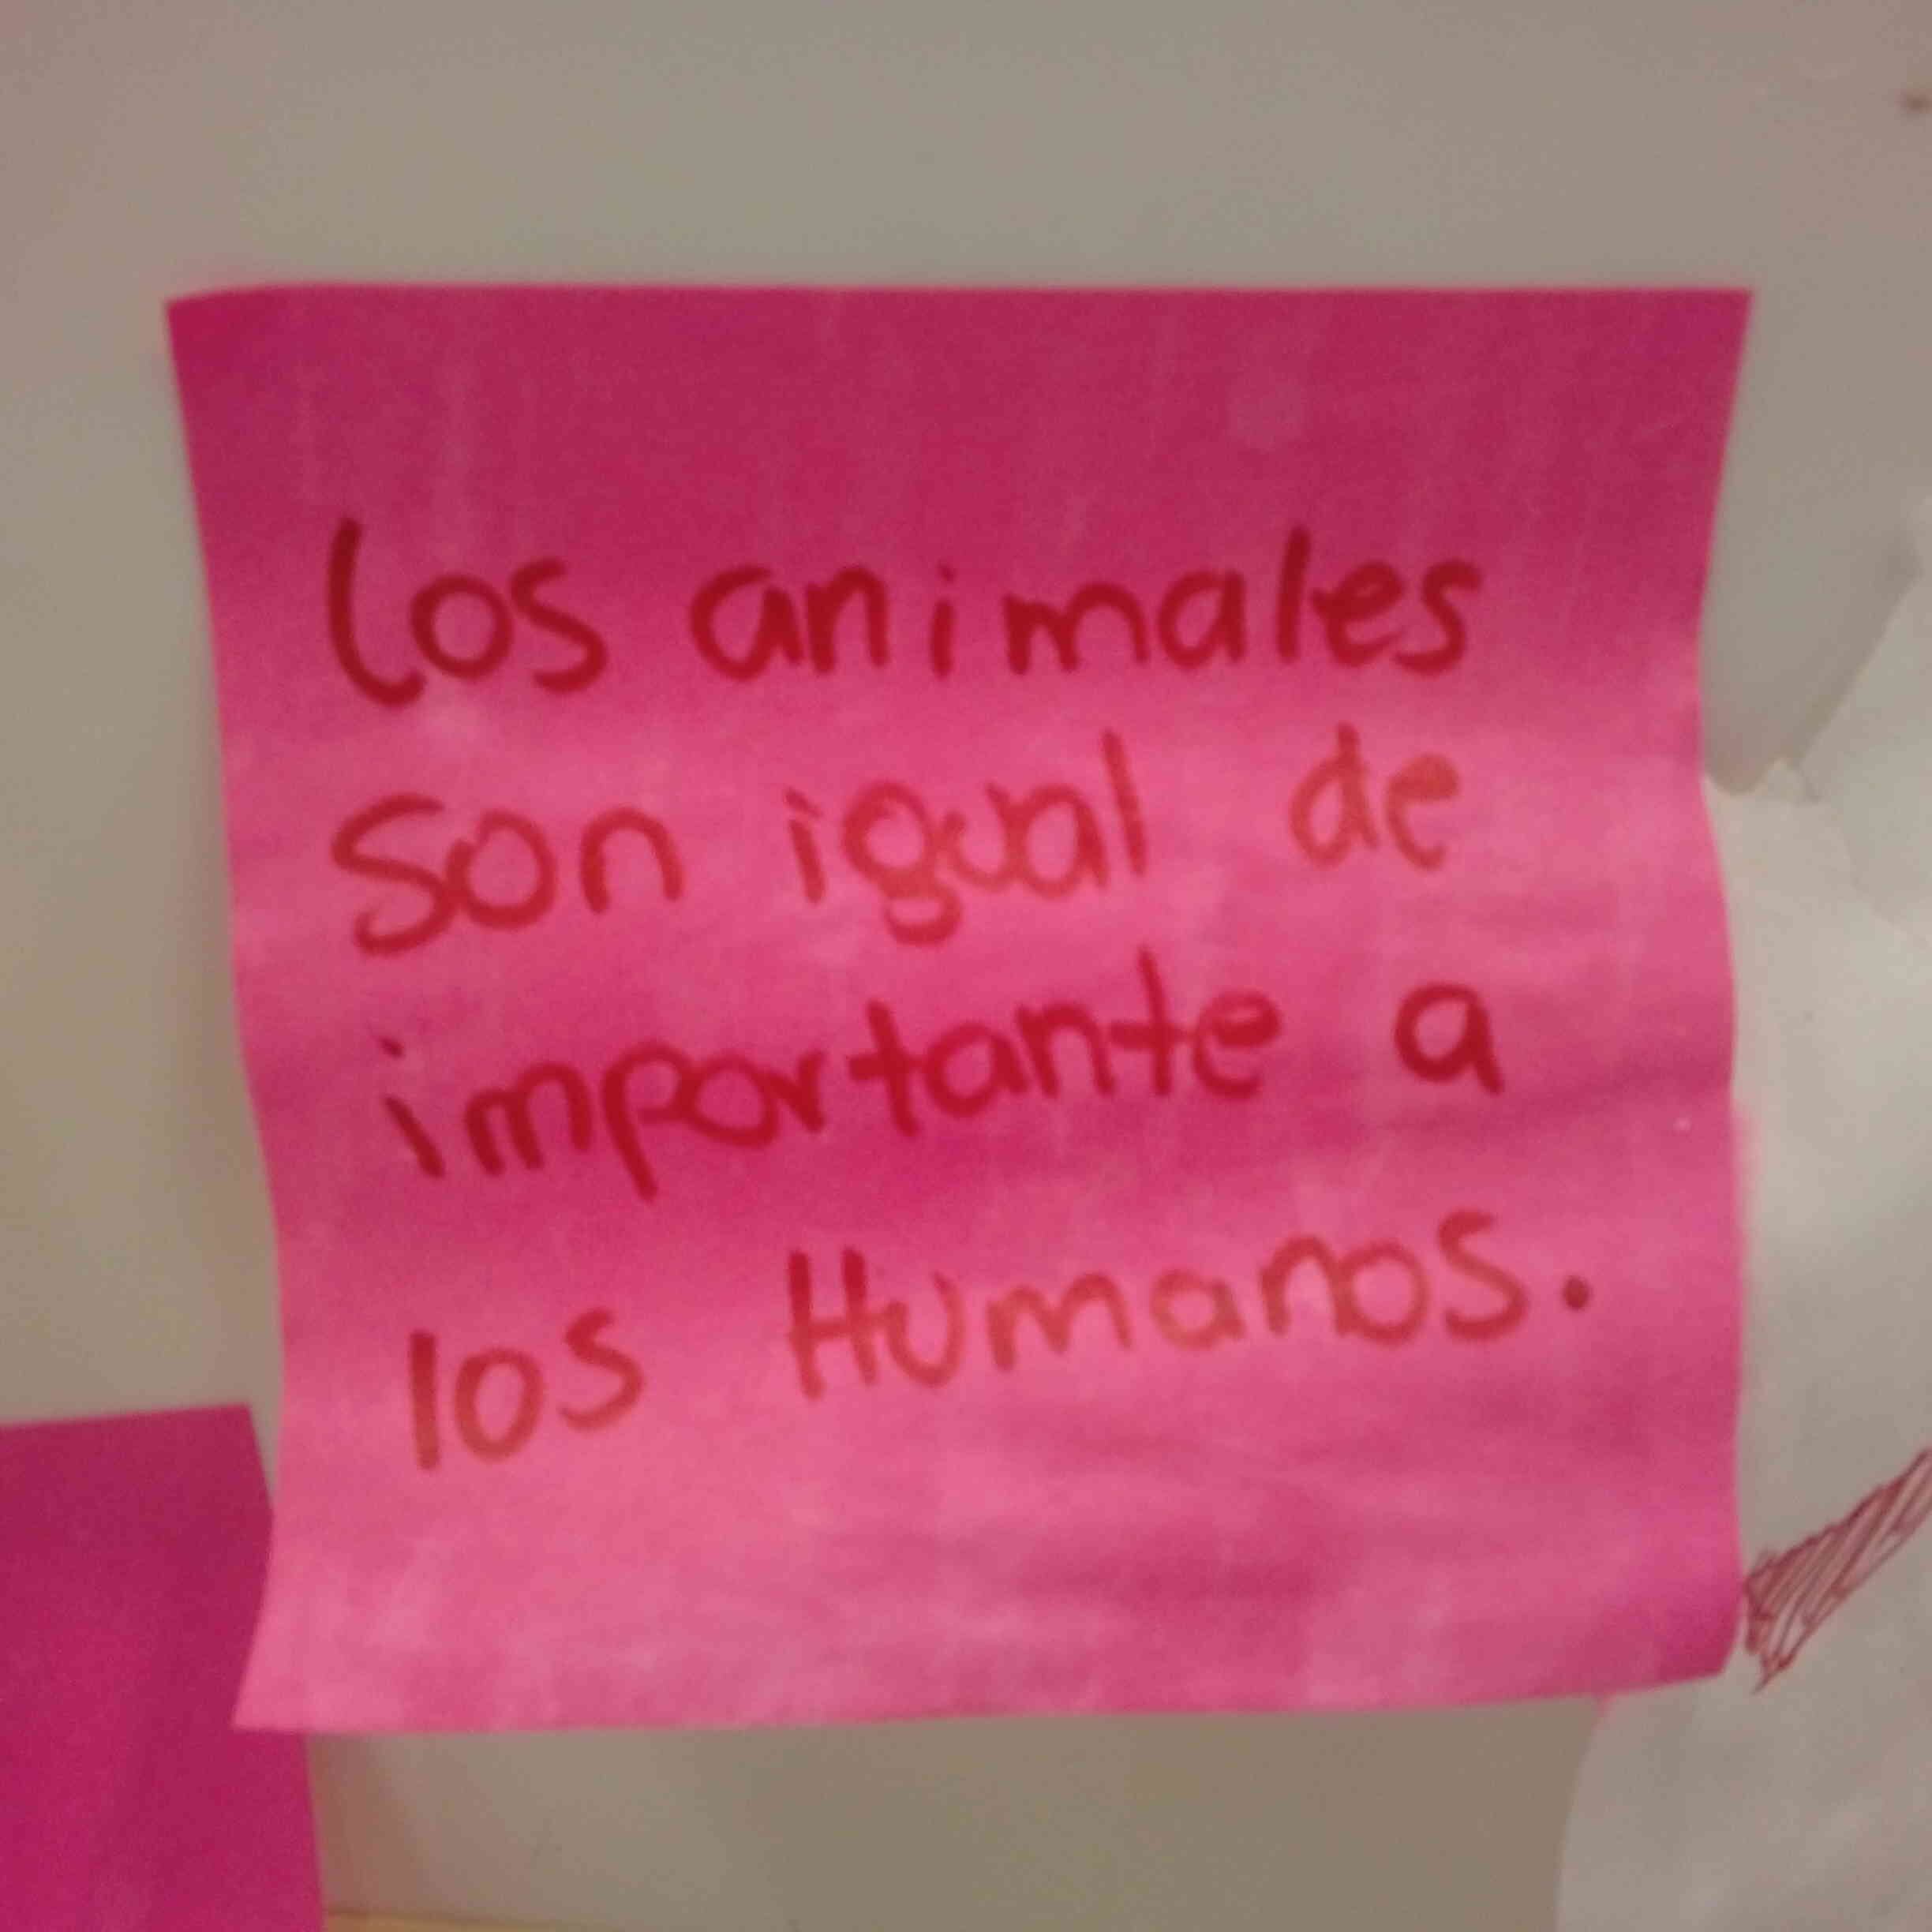 Los animales
son igual de
importante a
los Humanos.